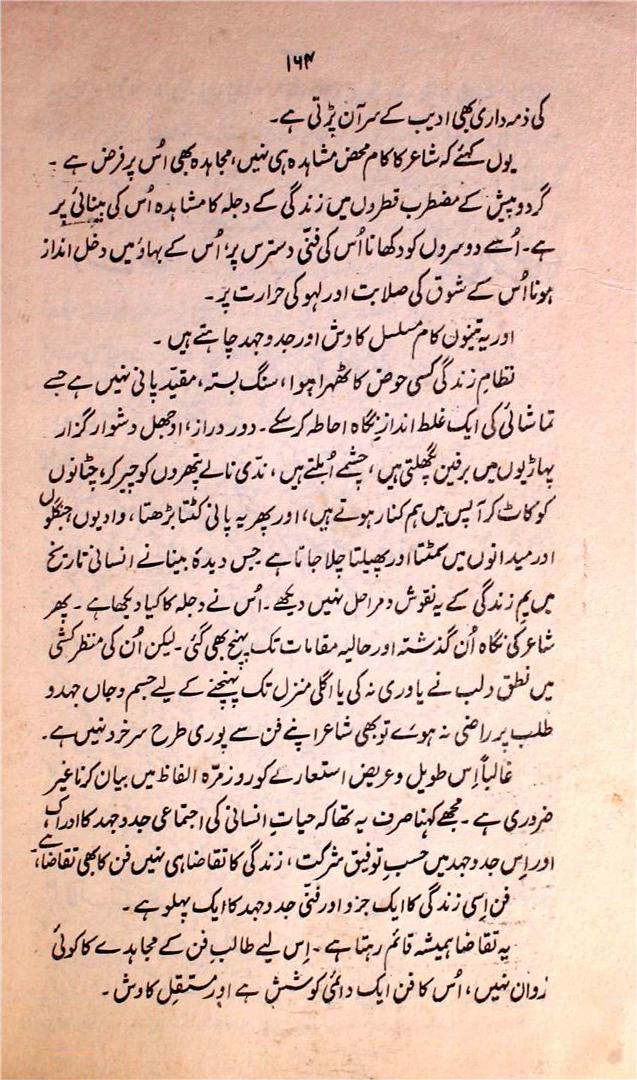 ۱۶۴
کی ذمہ داری بھی ادیب کے سر آن پڑتی ہے۔
یوں کہئے کہ شاعر کا کام محض مشاہدہ ہی نہیں، مجاہدہ بھی اُس پر فرض ہے۔
گرد و پیش کے مضطرب قطروں میں زندگی کے دجلہ کا مشاہدہ اُس کی بینائی پر
ہے۔ اُسے دوسروں کو دکھانا اُس کی فنّی دسترس پر، اُس کے بہاؤ میں دخل انداز
ہونا اُس کے شوق کی صلابت اور لہو کی حرارت پر۔
اور یہ تینوں کام مسلسل کاوش اور جدوجہد چاہتے ہیں۔
نظامِ زندگی کسی حوض کا ٹھہرا ہوا، سنگ بستہ، مقیّد پانی نہیں ہے جسے
تماشائی کی ایک غلط اندازِ نگاہ احاطہ کر سکے۔ دور دراز، اوجھل دشوار گزار
پہاڑیوں میں برفیں پگھلتی ہیں، چشمے اُبلتے ہیں، ندّی نالے پتھروں کو چیر کر، چٹانوں
کو کاٹ کر آپس میں ہم کنار ہوتے ہیں، اور پھر یہ پانی کٹتا بڑھتا، وادیوں، جنگلوں
اور میدانوں میں سمٹتا اور پھیلتا چلا جاتا ہے جس دیدۂ بینا نے انسانی تاریخ
میں یمِ زندگی کے یہ نقوش و مراحل نہیں دیکھے۔ اُس نے دجلہ کا کیا دیکھا ہے۔ پھر
شاعر کی نگاہ اُن گذشتہ اور حالیہ مقامات تک پہنچ بھی گئی۔ لیکن اُن کی منظر کشی
میں نطق و لب نے یاوری نہ کی یا اگلی منزل تک پہنچنے کے لیے جسم و جاں جہد و
طلب پر راضی نہ ہوئے تو بھی شاعر اپنے فن سے پوری طرح سرخرو نہیں ہے۔
غالباً اِس طویل و عریض استعارے کو روز مرّہ الفاظ میں بیان کرنا غیر
ضروری ہے۔ مجھے کہنا صرف یہ تھا کہ حیاتِ انسانی کی اجتماعی جدوجہد کا ادراک،
اور اِس جدوجہد میں حسبِ توفیق شرکت، زندگی کا تقاضا ہی نہیں فن کا بھی تقاضا ہے۔
فن اِسی زندگی کا ایک جزو اور فنّی جدوجہد کا ایک پہلو ہے۔
یہ تقاضا ہمیشہ قائم رہتا ہے۔ اِس لیے طالبِ فن کے مجاہدے کا کوئی
نروان نہیں، اُس کا فن ایک دائمی کوشش ہے اور مستقل کاوش۔